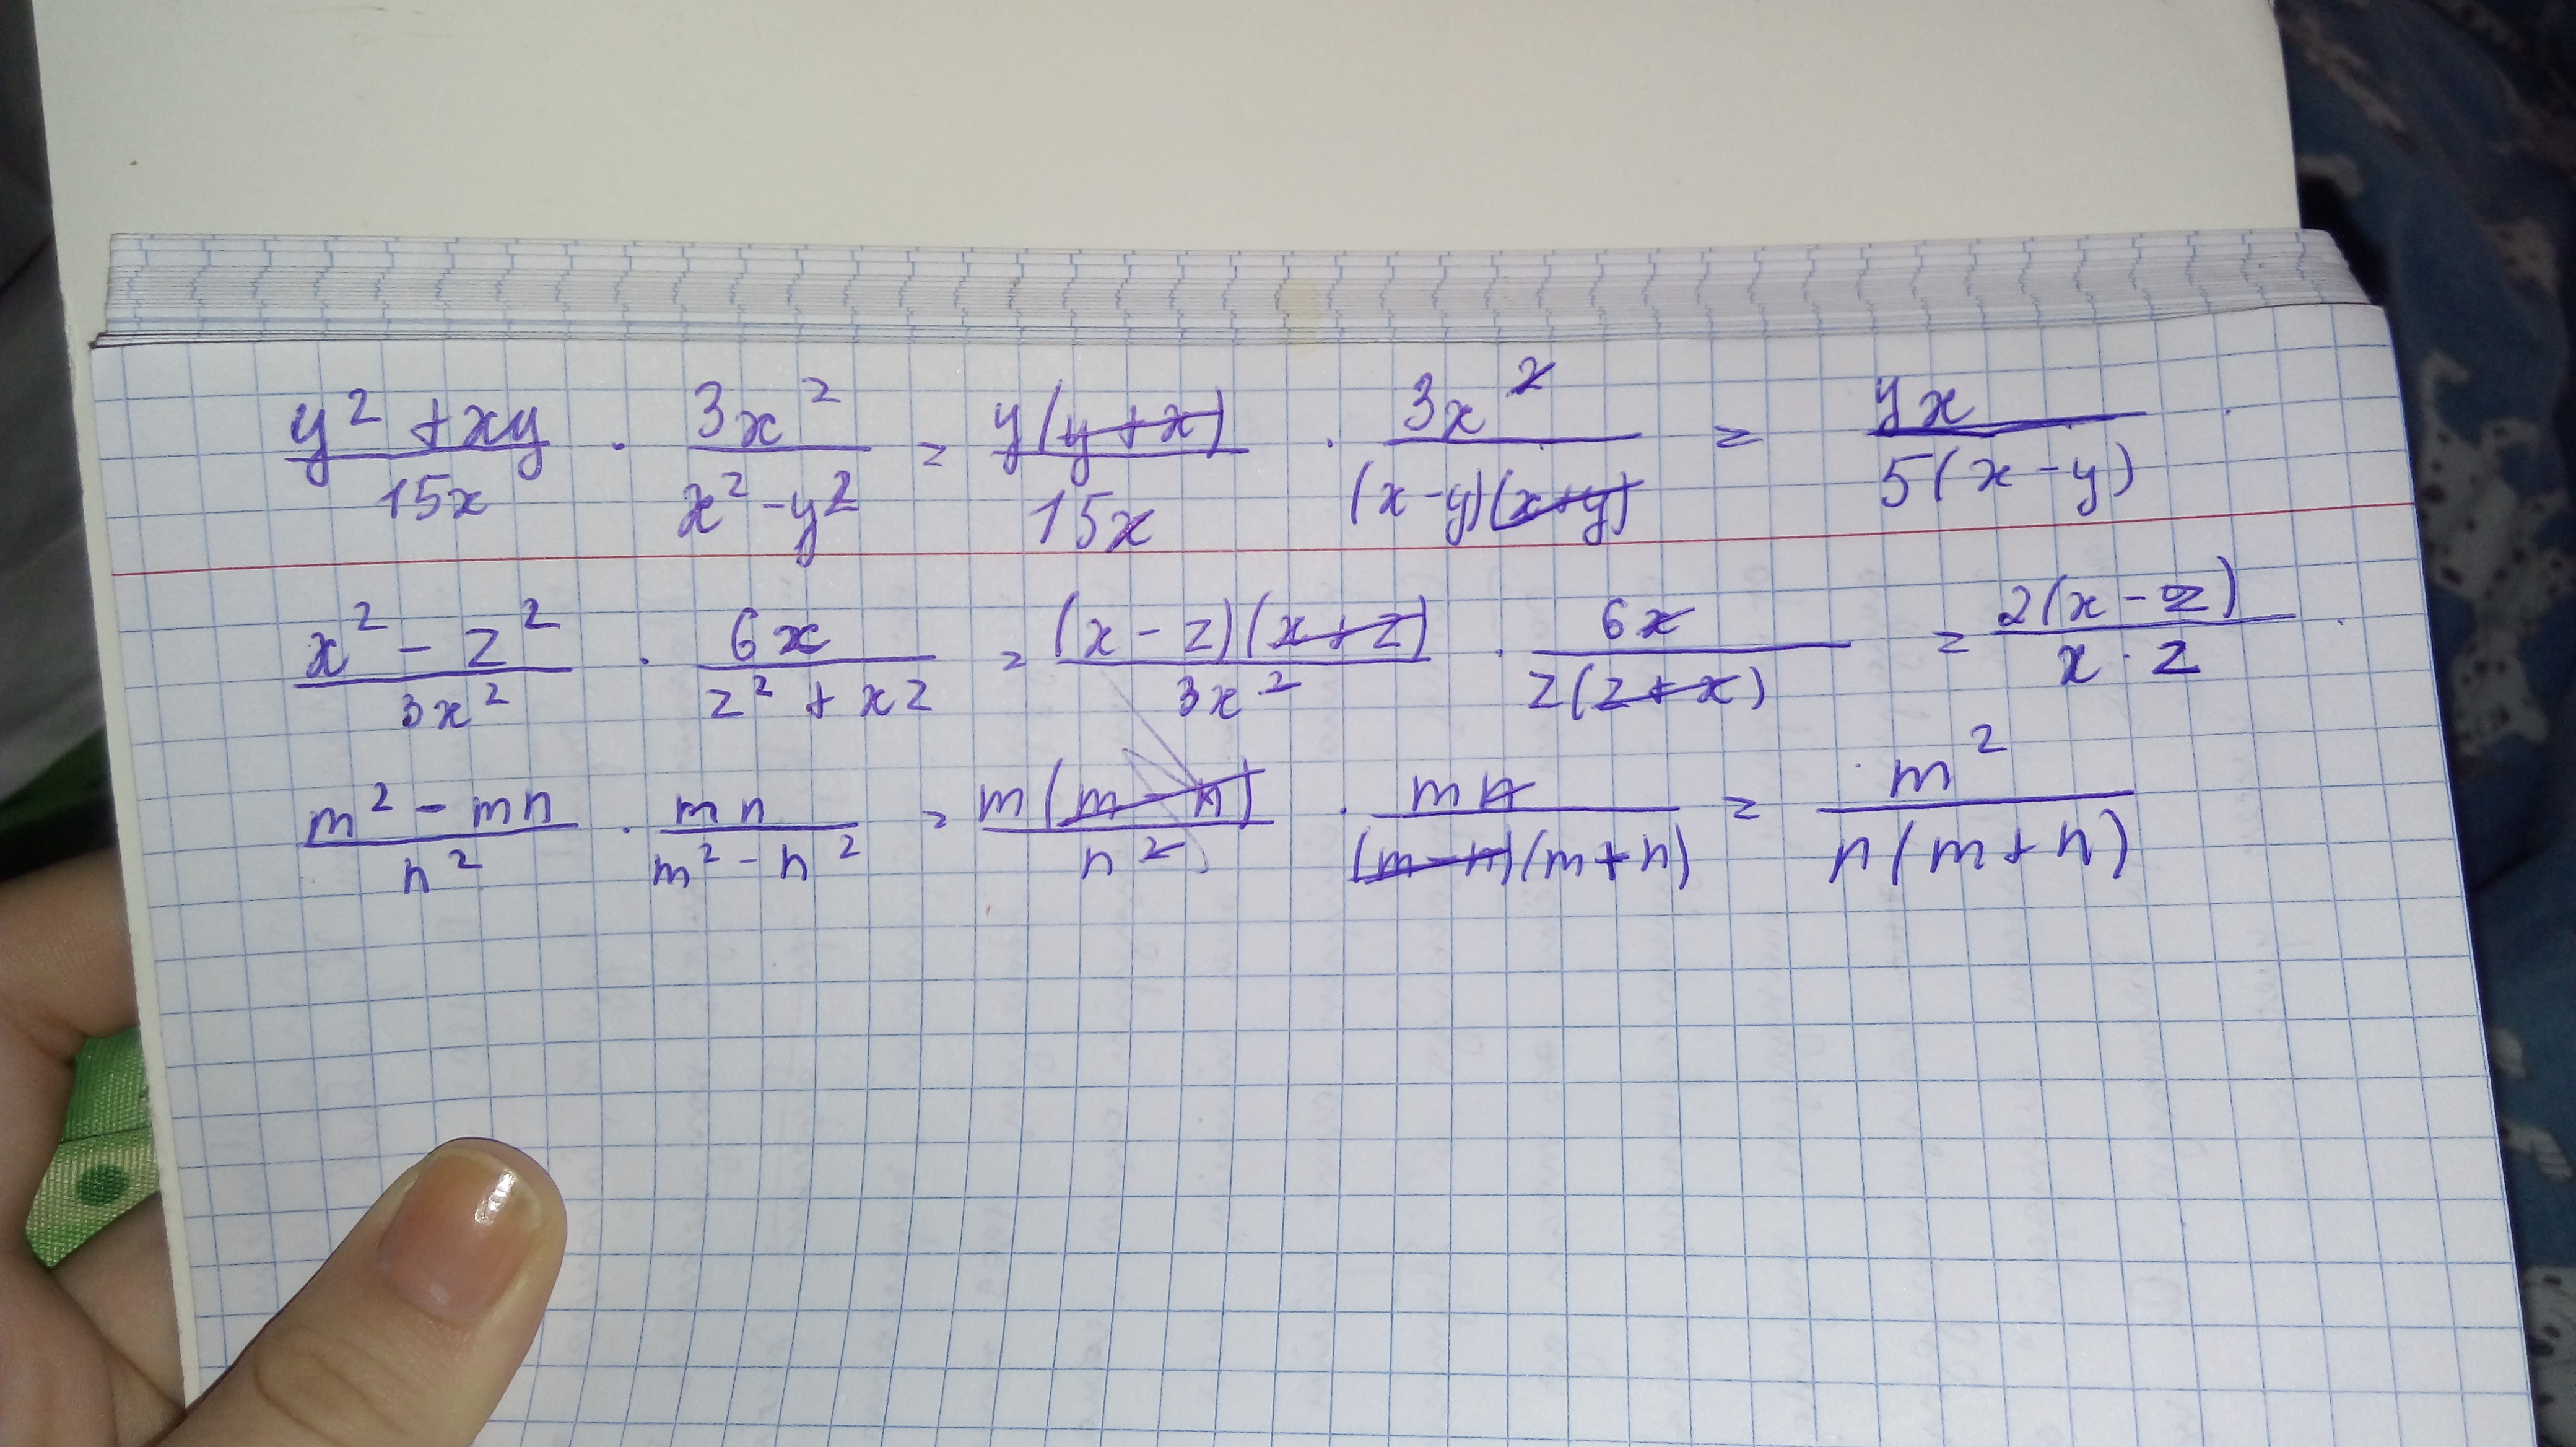 (y² + xy)/(15x) · (3x²)/(x² - y²) = (y(y + x))/(15x) · (3x²)/((x - y)(x + y)) = (yx)/(5(x - y))
(x² - z²)/(3x²) · (6x)/(z² + xz) = ((x - z)(x + z))/(3x²) · (6x)/(z(z + x)) = (2(x - z))/(x · z)
(m² - mn)/(n²) · (mn)/(m² - n²) = (m(m - n))/(n²) · (mn)/((m - n)(m + n)) = (m²)/(n(m + n))